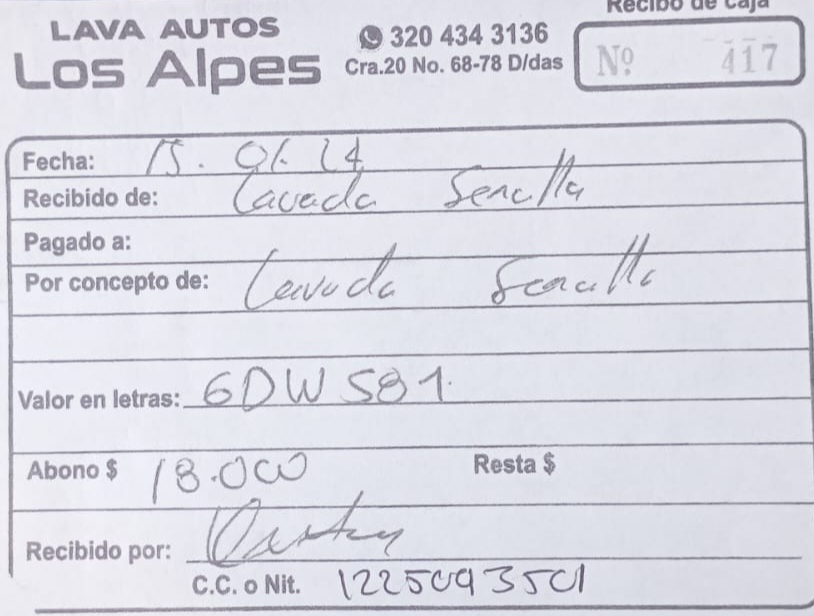 Recibo de Caja
LAVA AUTOS
Los Alpes
320 434 3136
Cra.20 No. 68-78 D/das
Nº 417
Fecha: 15. 01. 24
Recibido de: Lavada Sencilla
Pagado a:
Por concepto de: Lavada Sencilla
Valor en letras: GDW 581.
Abono $ 18.000 Resta $
Recibido por:
C.C. o Nit. 1225093501